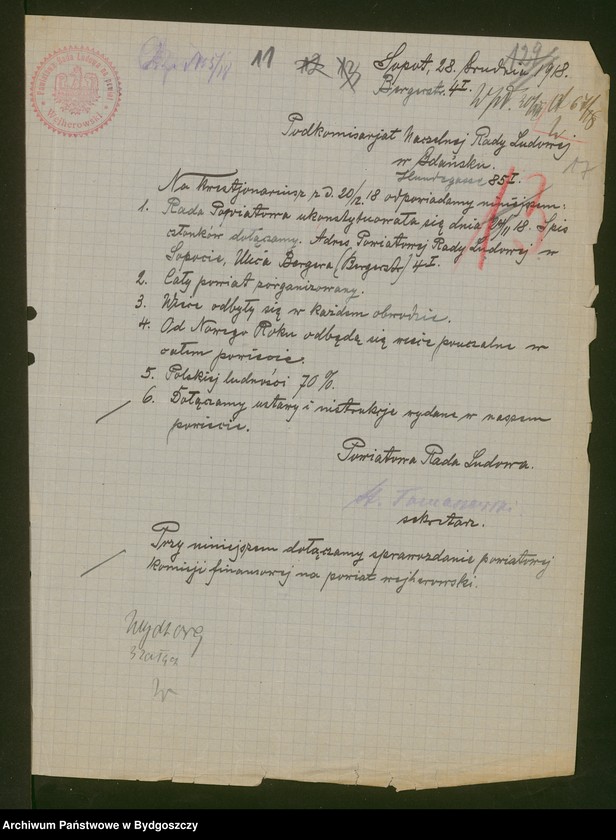 Powiatowa Rada Ludowa na Powiat
Wejherowski
11 12 13
129
Sopot, 28. Grudnia 1918.
Bergerstr. 4 I.
Wpł. 30/12
17
Podkomisarjat Naczelnej Rady Ludowej
w Gdańsku.
Hundegasse 85 I.
13
Na kwestjonariusz z d. 20/12.18 odpowiadamy niniejszem:
1. Rada Powiatowa ukonstytuowała się dnia /11 18. Spis
członków dołączamy. Adres Powiatowej Rady Ludowej w
Sopocie, Ulica Bergera (Bergerstr.) 4 I.
2. Cały powiat zorganizowany.
3. Wiece odbyły się w każdem obwodzie.
4. Od Nowego Roku odbędą się wiece pouczalne w
całem powiecie.
5. Polskiej ludności 70 %.
6. Dołączamy ustawy i instrukcje wydane w naszem
powiecie.
Powiatowa Rada Ludowa.
St. Tomaszewski
sekretarz.
Przy niniejszem dołączamy sprawozdanie powiatowej
komisji finansowej na powiat wejherowski.
Wydz org
3 załącz
Archiwum Państwowe w Bydgoszczy